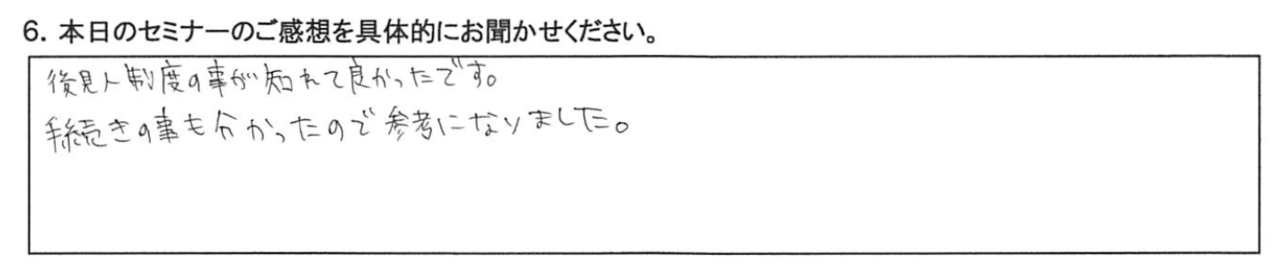 6. 本日のセミナーのご感想を具体的にお聞かせください。
後見人制度の事が知れて良かったです。
手続きの事も分かったので参考になりました。